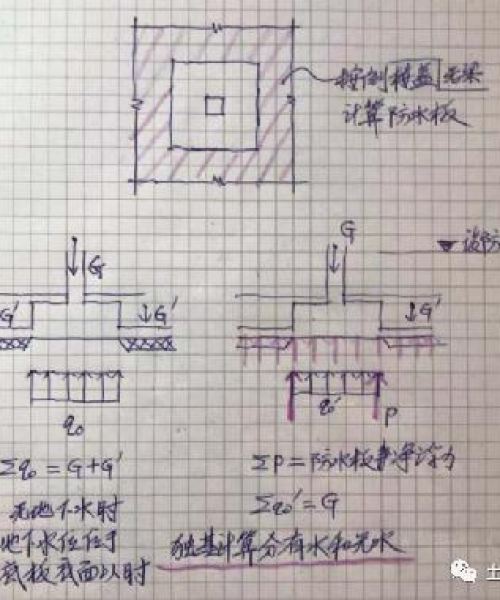 按倒楼盖无梁
计算防水板
G
G
设防
G'
G'
G'
q₀
q₀'
P
Σq₀ = G+G'
ΣP = 防水板净浮力
无地下水时
Σq₀' = G
地下水位位于
独基计算分有水和无水
底板底面以时
土